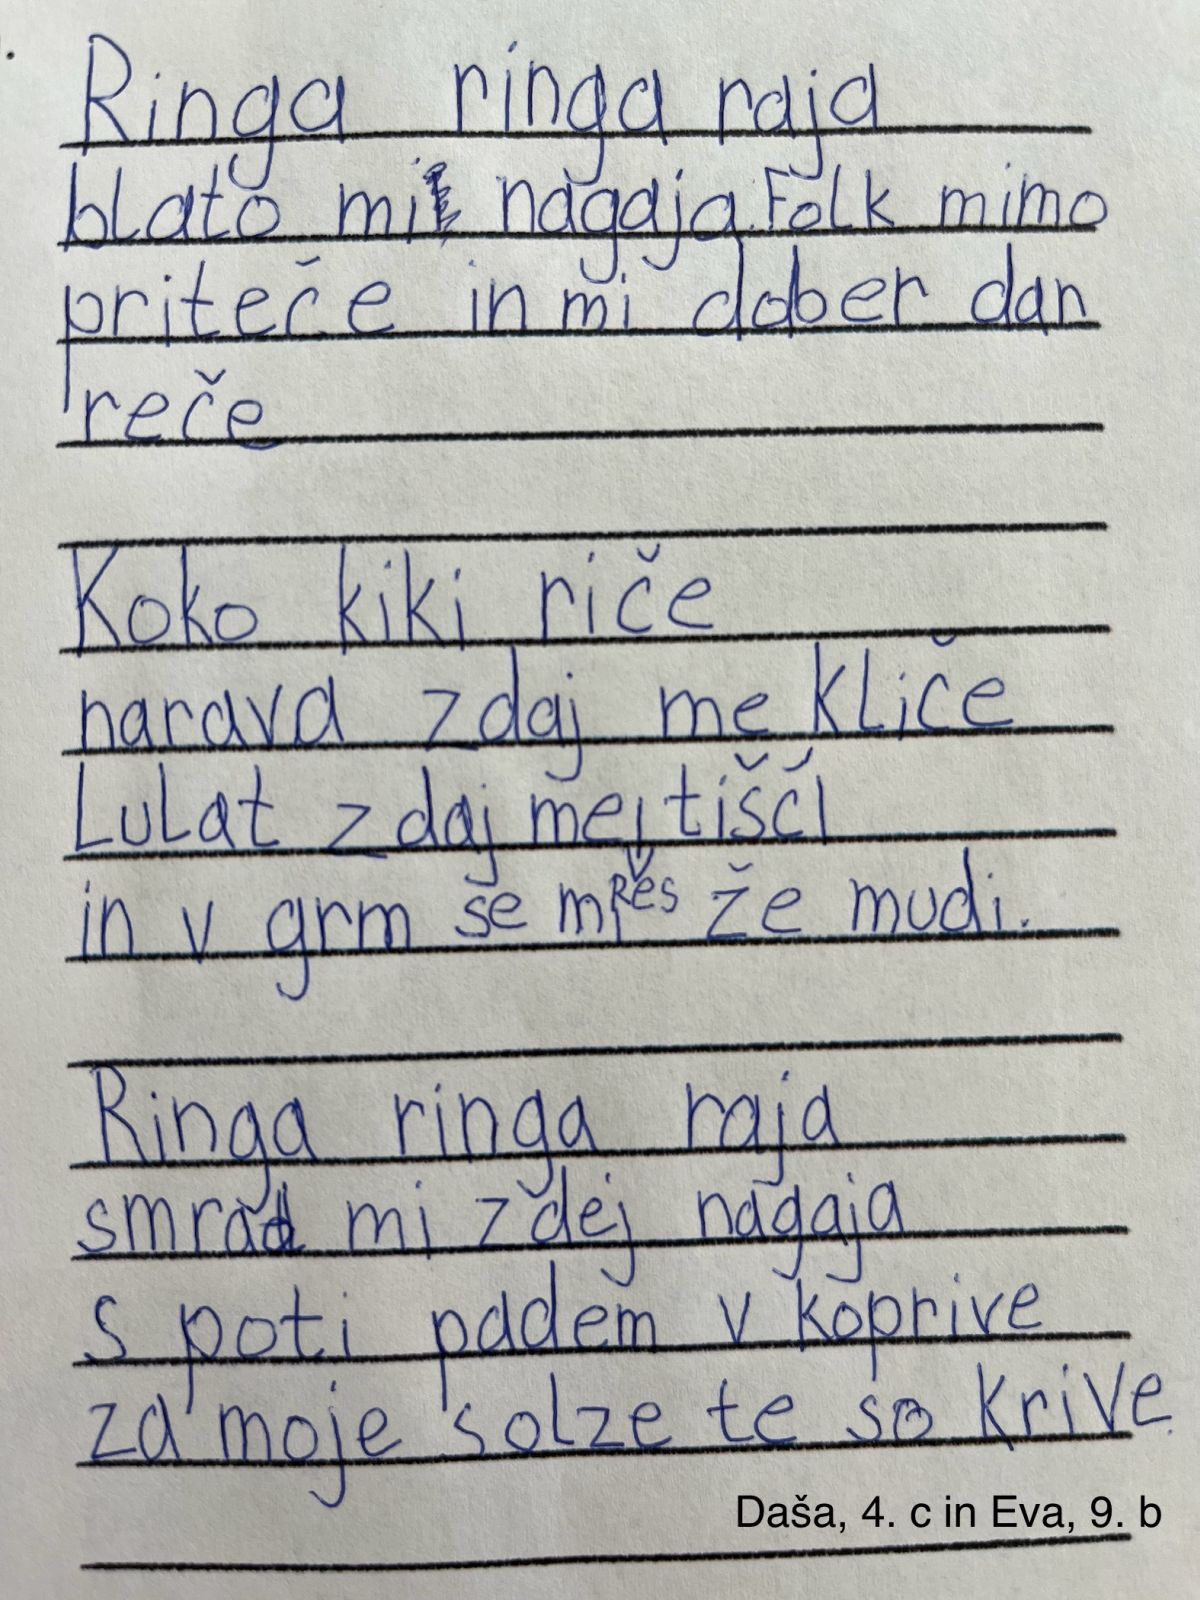 Ringa ringa raja
blato mi nagaja. Folk mimo
priteče in mi dober dan
reče
Koko kiki riče
narava zdaj me kliče
Lulat zdaj me tišči
in v grm se mi res že mudi.
Ringa ringa raja
smrad mi zdej nagaja
s poti padem v koprive
za moje solze te so krive.
Daša, 4. c in Eva, 9. b